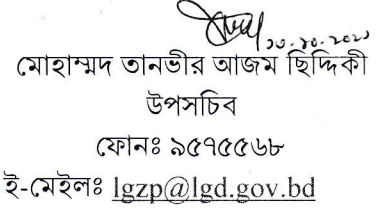 ১০.১০.২০২১
মোহাম্মদ তানভীর আজম ছিদ্দিকী
উপসচিব
ফোনঃ ৯৫৭৫৫৬৮
ই-মেইলঃ lgzp@lgd.gov.bd